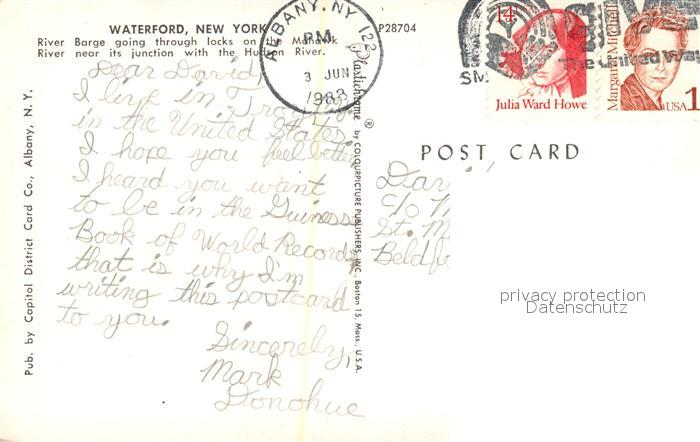 WATERFORD, NEW YORK
River Barge going through locks on the Mohawk
River near its junction with the Hudson River.
P28704
Dear David,
I live in Troy
in the United States.
I hope you feel better
I heard you want
to be in the Guiness
Book of World Records
that is why I'm
writing this postcard
to you.
Sincerely,
Mark
Donohue
Pub. by Capitol District Card Co., Albany, N. Y.
Plastichrome ® by COLOURPICTURE PUBLISHERS, INC., Boston 15, Mass., U.S.A.
ALBANY, NY 122
PM
3 JUN
1988
14
Julia Ward Howe
Margaret Mitchell
USA 1
The United Way
POST CARD
c/o M
St. M
privacy protection
Datenschutz